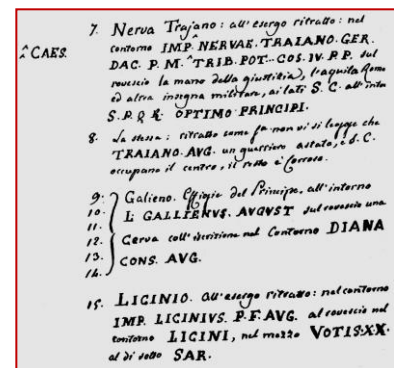 7. Nerva Trajano: all'esergo ritratto: nel
^CAES. contorno IMP.^NERVAE. TRAIANO. GER.
DAC. P. M.^TRIB. POT. COS. IV. P. P. sul
rovescio la mano della giustitia, l'aquila Rom:
ed altra insegna militare, ai lati S. C. all'into
S. P. Q. R. OPTIMO PRINCIPI.
8. La stessa: ritratto come fa non vi si legge che
TRAIANO. AVG. un guerriero astato, e S. C.
occupano il centro, il resto è corroso.
9. Galieno. Effigie del Principe, all'intorno
10. L. GALLIENVS. AVGVST sul rovescio una
11.
12. Cerva coll'iscrizione nel Contorno DIANA
13. CONS. AVG.
14.
15. LICINIO. all'esergo ritratto: nel contorno
IMP. LICINIVS. P. F. AVG. al rovescio nel
contorno LICINI, nel mezzo VOTIS. XX.
al di sotto SAR.